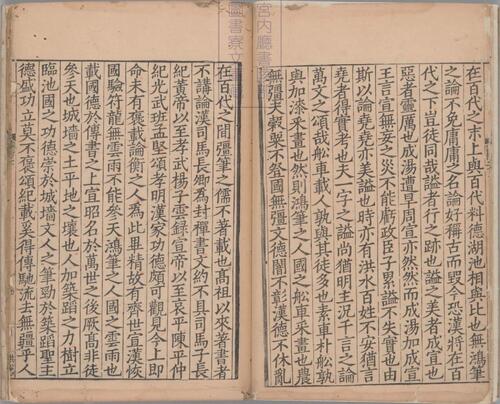 宮内廳書
圖書寮文
在百代之末上與百代料德湖池相與比也無鴻筆
之論不免庸庸之名論好稱古而毀今恐漢將在百
代之下豈徒同哉謚者行之跡也謚之美者成宣也
惡者靈厲也成湯遭旱周宣亦然然而成湯加成宣
王言宣無妄之災不能虧政臣子累謚不失實也由
斯以論堯堯亦美謚也時亦有洪水百姓不安猶言
堯者得實考也夫一字之謚尚猶明主況千言之論
萬文之頌哉舡車載人孰與其徒多也素車朴舡孰
與加漆采畫也然則鴻筆之人國之舡車采畫也農
無彊夫穀粟不登國無彊文德闇不彰漢德不休亂
在百代之間彊筆之儒不著載也髙祖以來著書者
不講論漢司馬長卿為封禪書文約不具司馬子長
紀黃帝以至孝武楊子雲錄宣帝以至哀平陳平仲
紀光武班孟堅頌孝明漢家功德頗可觀見今上即
命未有褒載論衡之人為此畢精故有齊世宣漢恢
國驗符龍無雲雨不能參天鴻筆之人國之雲雨也
載國德於傳書之上宣昭名於萬世之後厥髙非徒
參天也城墻之土平地之壤也人加築蹈之力樹立
臨池國之功德崇於城墻文人之筆勁於築蹈聖主
德盛功立莫不褒頌紀載奚得傳馳流去無疆乎人